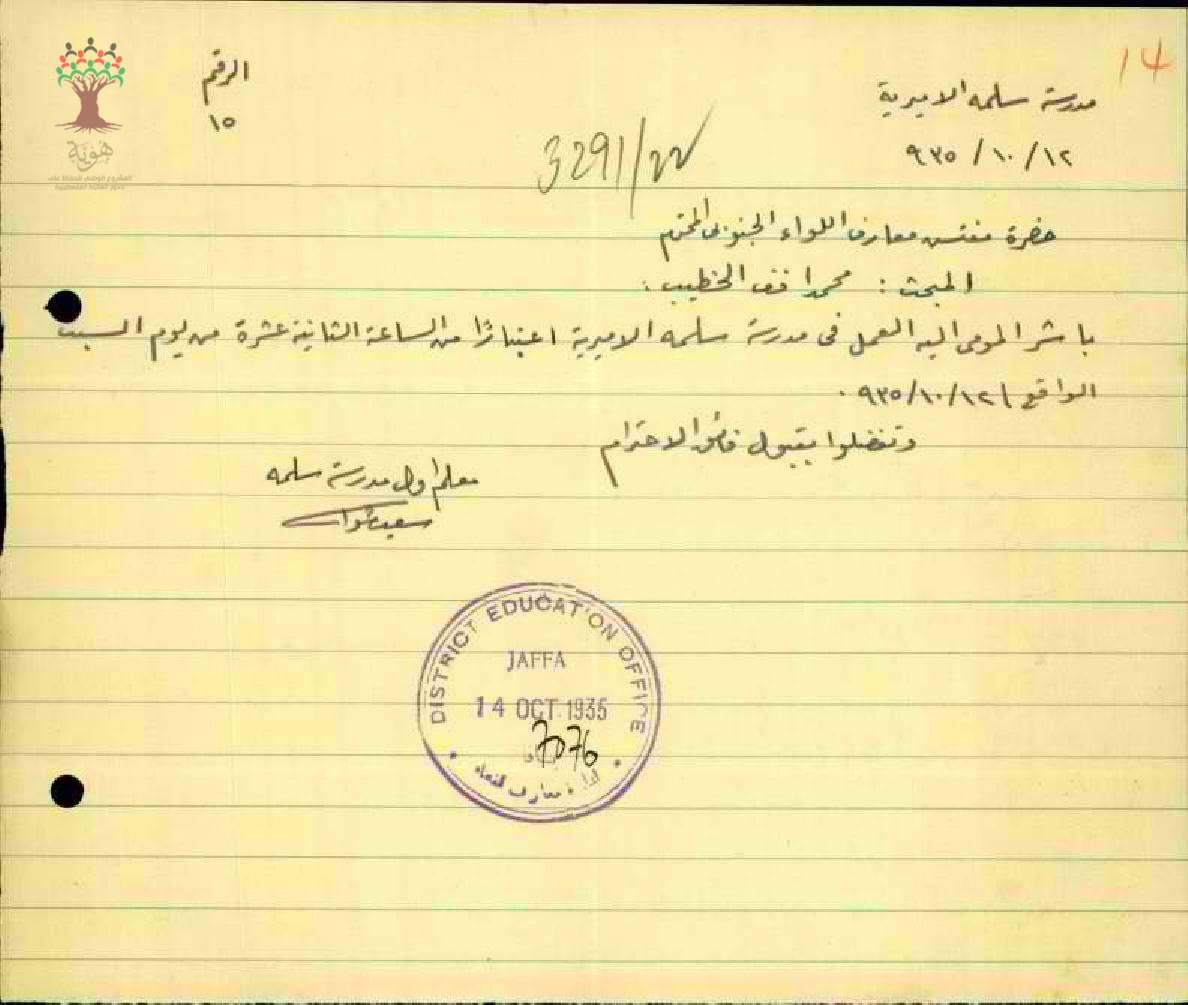 14
مدرسة سلمه الاميرية
١٢/ ١٠/ ٩٣٥
الرقم
١٥
3291/22
هوية
المشروع الوطني للحفاظ على
جذور العائلة الفلسطينية
حضرة مفتش معارف اللواء الجنوبي المحترم
المبحث : محمد افندي الخطيب .
باشر المومى اليه العمل في مدرسة سلمه الاميرية اعتبارًا من الساعة الثانية عشرة من يوم السبت
الواقع ١٢/١٠/٩٣٥ .
وتفضلوا بقبول فائق الاحترام
معلم اول مدرسة سلمه
سعيد
DISTRICT EDUCATION OFFICE
JAFFA
14 OCT 1935
7076
ادارة معارف قضاء
يافا